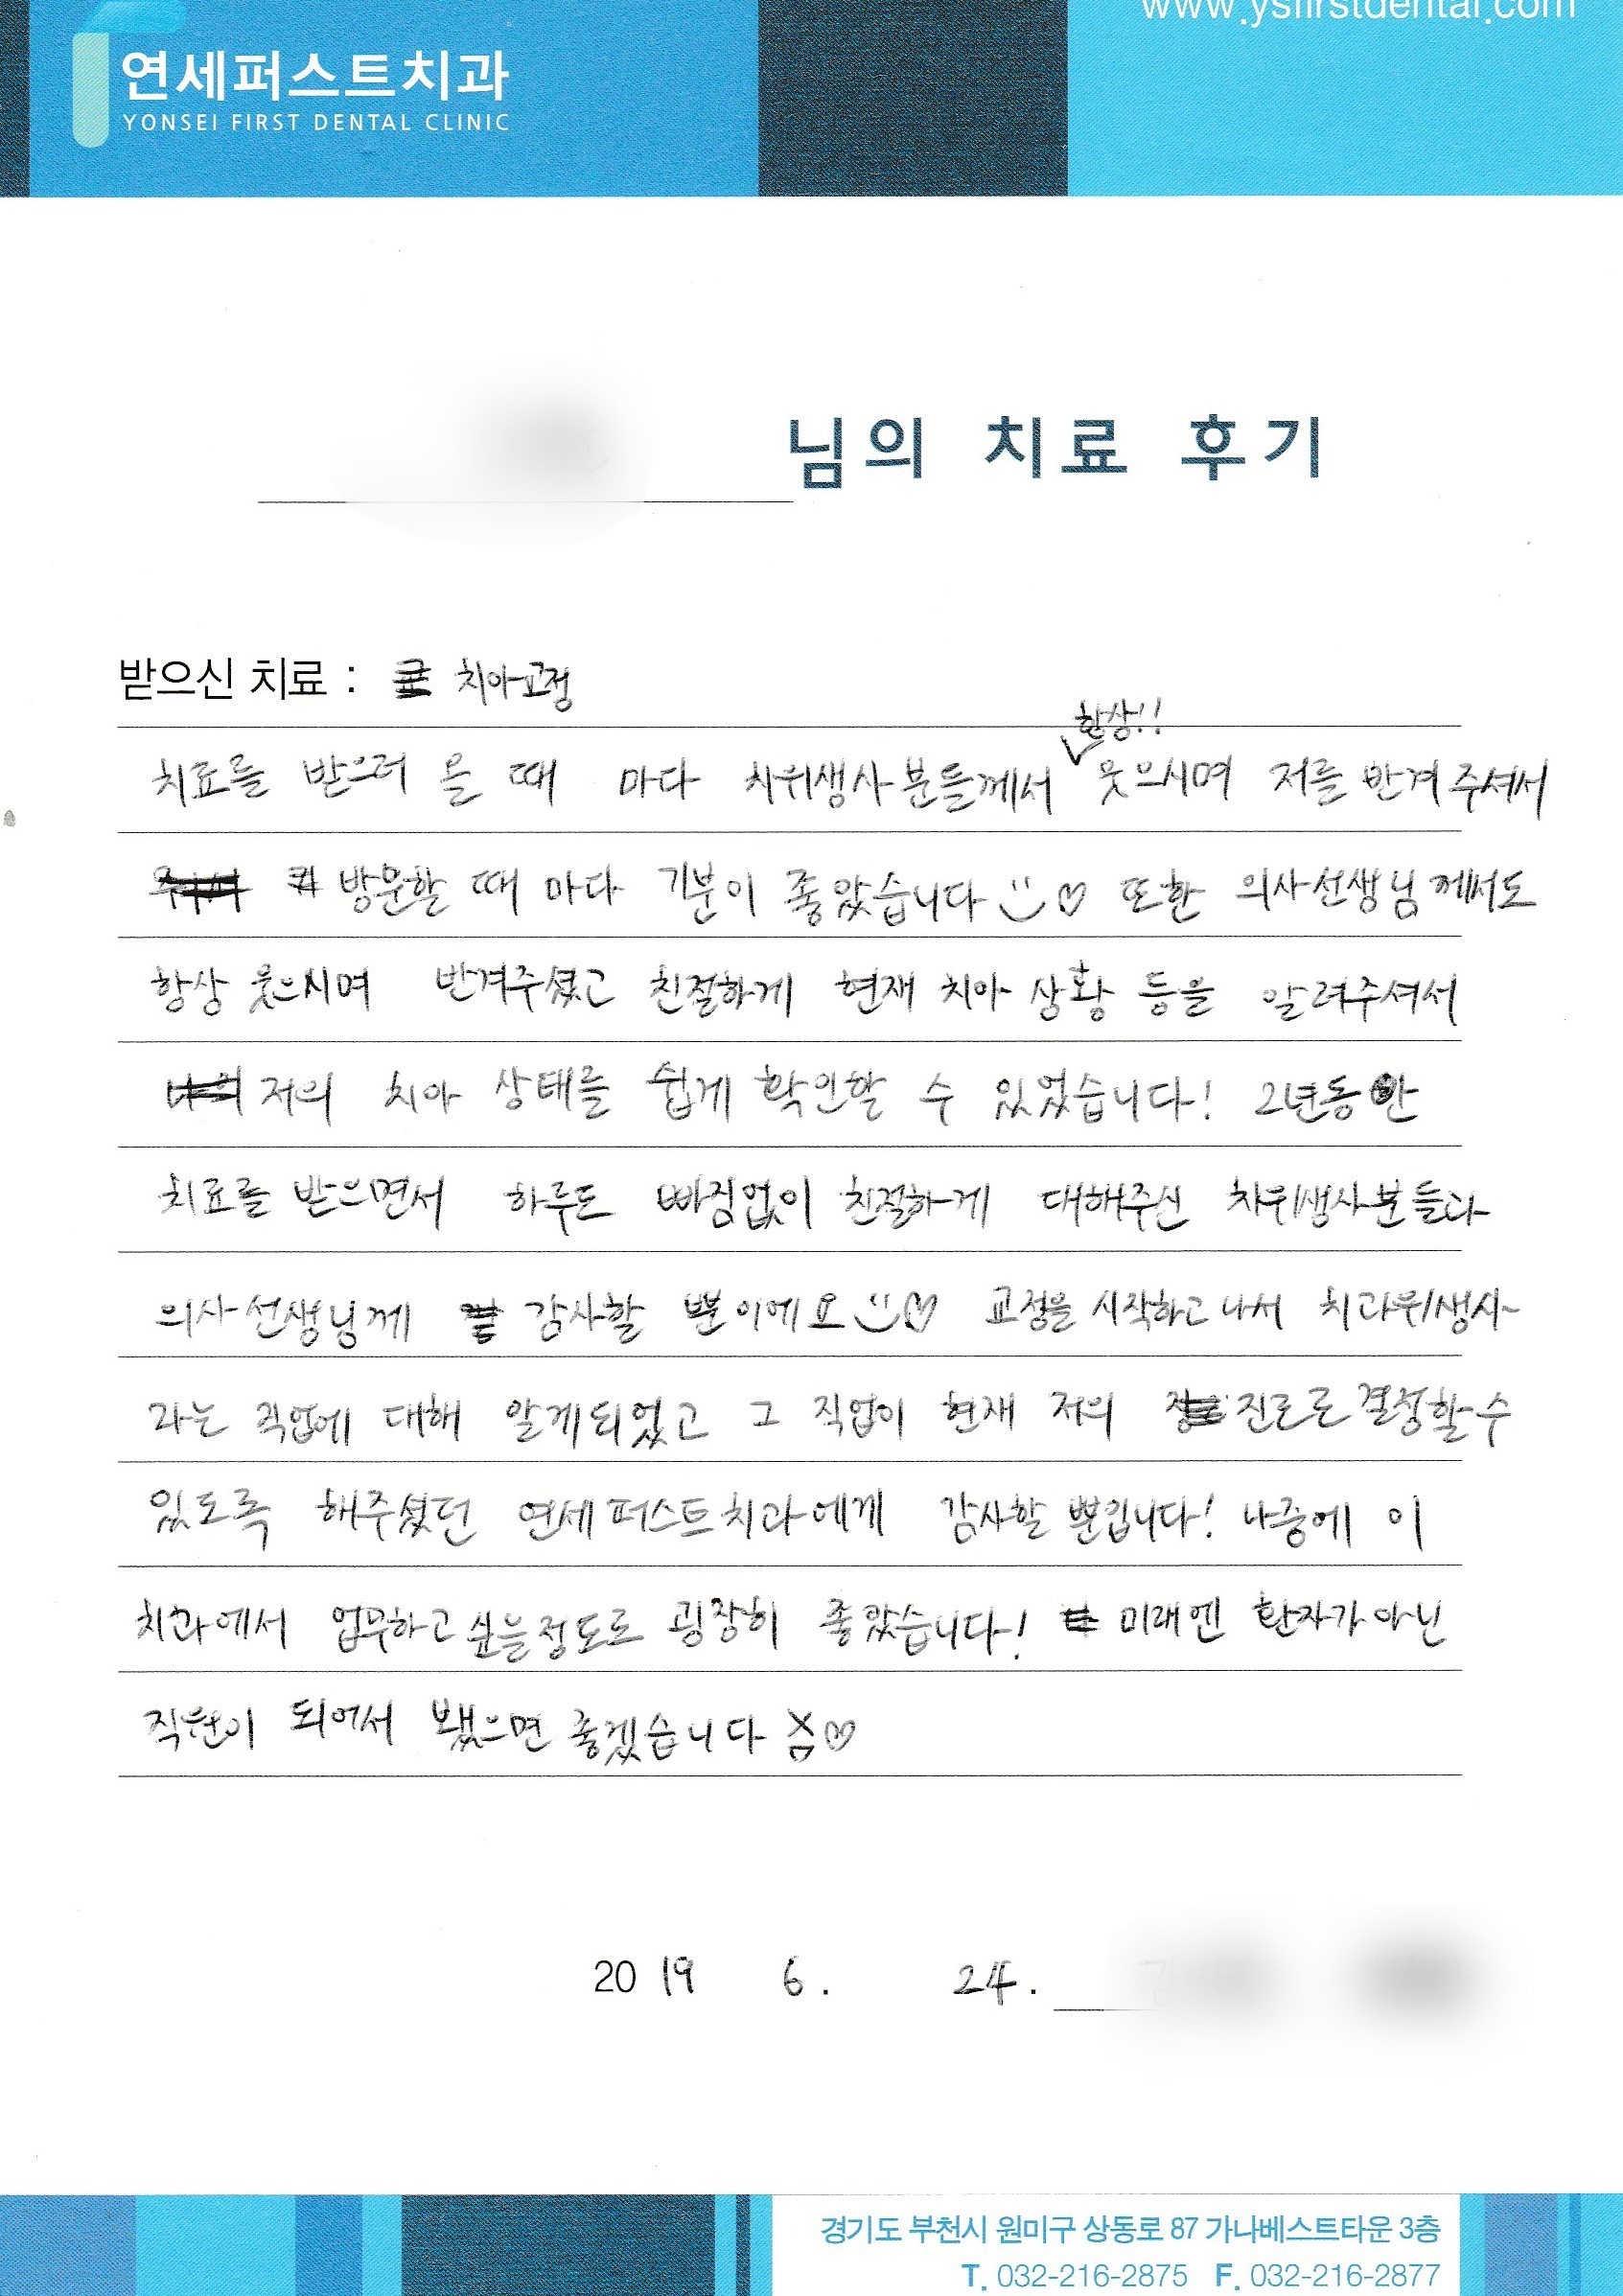 www.ysfirstdental.com
연세퍼스트치과
YONSEI FIRST DENTAL CLINIC
님의 치료 후기
받으신 치료 : 치아교정
항상!!
치료를 받으러 올 때 마다 치위생사분들께서 웃으시며 저를 반겨주셔서
방문할 때 마다 기분이 좋았습니다 ♡ 또한 의사선생님께서도
항상 웃으시며 반겨주셨고 친절하게 현재 치아 상황 등을 알려주셔서
저의 치아 상태를 쉽게 확인할 수 있었습니다! 2년동안
치료를 받으면서 하루도 빠짐없이 친절하게 대해주신 치위생사분들과
의사선생님께 감사할 뿐이에요 ♡ 교정을 시작하고 나서 치과위생사
라는 직업에 대해 알게되었고 그 직업이 현재 저의 진로로 결정할수
있도록 해주셨던 연세퍼스트치과에게 감사할 뿐입니다! 나중에 이
치과에서 업무하고 싶을정도로 굉장히 좋았습니다! 미래엔 환자가 아닌
직원이 되어서 뵀으면 좋겠습니다 ♡
2019 6. 24.
경기도 부천시 원미구 상동로 87 가나베스트타운 3층
T. 032-216-2875 F. 032-216-2877